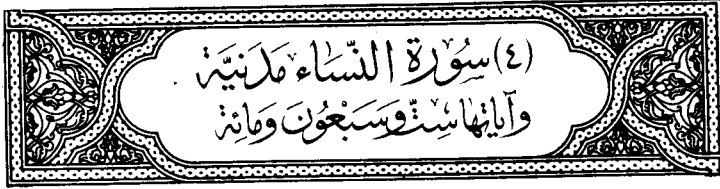 (٤) سُورَة النِّسَاء مَدَنيَّة
وَآيَاتهَا سِتّ وَسَبْعُونَ وَمِائة